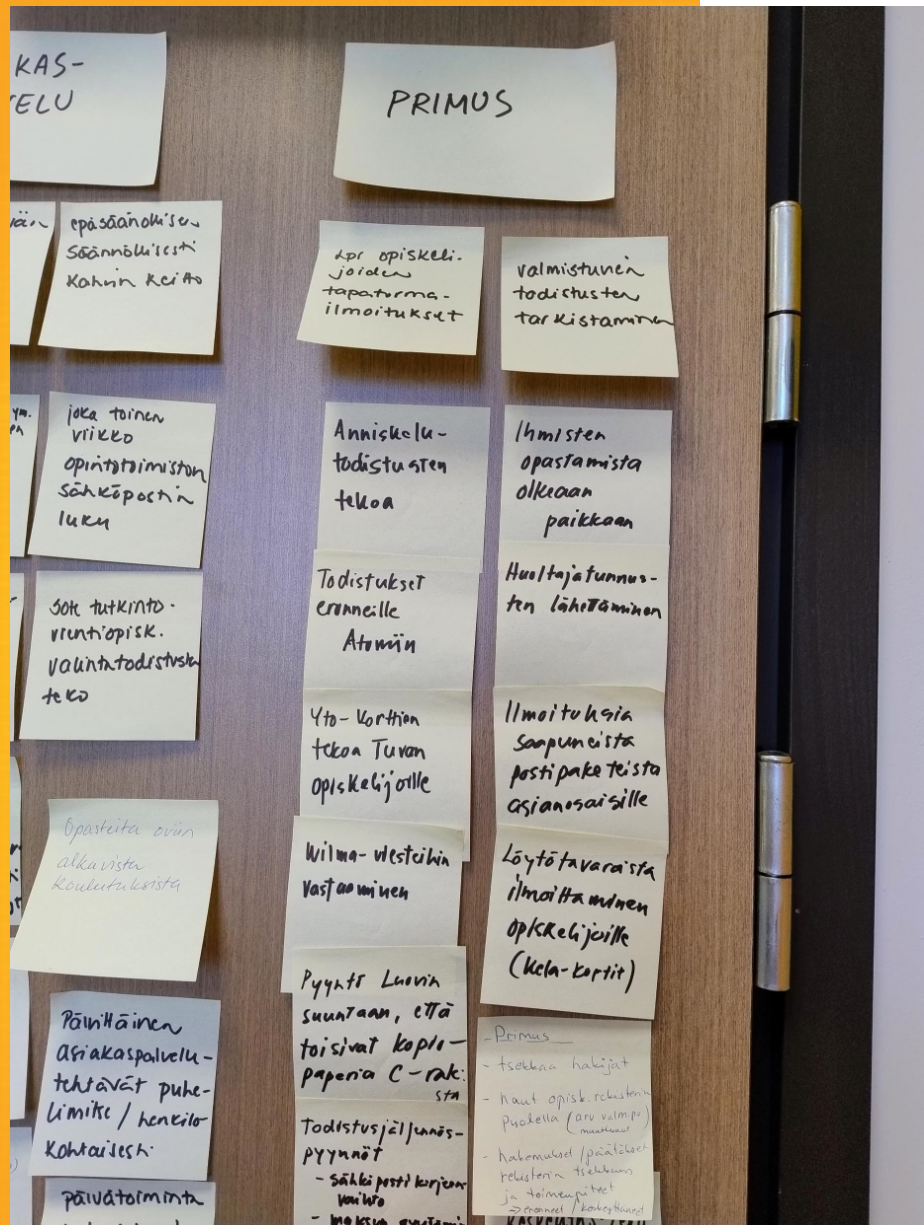 KAS-
TELU
PRIMUS
epäsäännöllisen
säännöllisesti
kahvin keitto
Lpr opiskeli-
joiden
tapaturma-
ilmoitukset
valmistuvien
todistusten
tarkistaminen
joka toinen
viikko
opintotoimiston
sähköpostin
luku
Anniskelu-
todistusten
tekoa
Ihmisten
opastamista
oikeaan
paikkaan
Todistukset
eronneille
Atomiin
Huoltajatunnus-
ten lähettäminen
sote tutkinto-
vientiopisk.
valintatodistusten
teko
Yto-korttien
tekoa Tuvan
opiskelijoille
Ilmoituksia
saapuneista
postipaketeista
asianosaisille
Opasteita oviin
alkavista
koulutuksista
Wilma-viesteihin
vastaaminen
Löytötavaroista
ilmoittaminen
opiskelijoille
(Kela-kortit)
Päivittäinen
asiakaspalvelu-
tehtävät puhe-
limitse / henkilö-
kohtaisesti
Pyyntö Luovin
suuntaan, että
toisivat kopio-
paperia C-rak.
sta
- Primus
- tsekkaa hakijat
- haut opisk.rekisterin
puolella
- hakemukset / päätökset
rekisterin tsekkaus
ja toimenpiteet
Todistusjäljennös-
pyynnöt
- sähköposti kirjeen
vaihto
- maksun
päivätoiminta